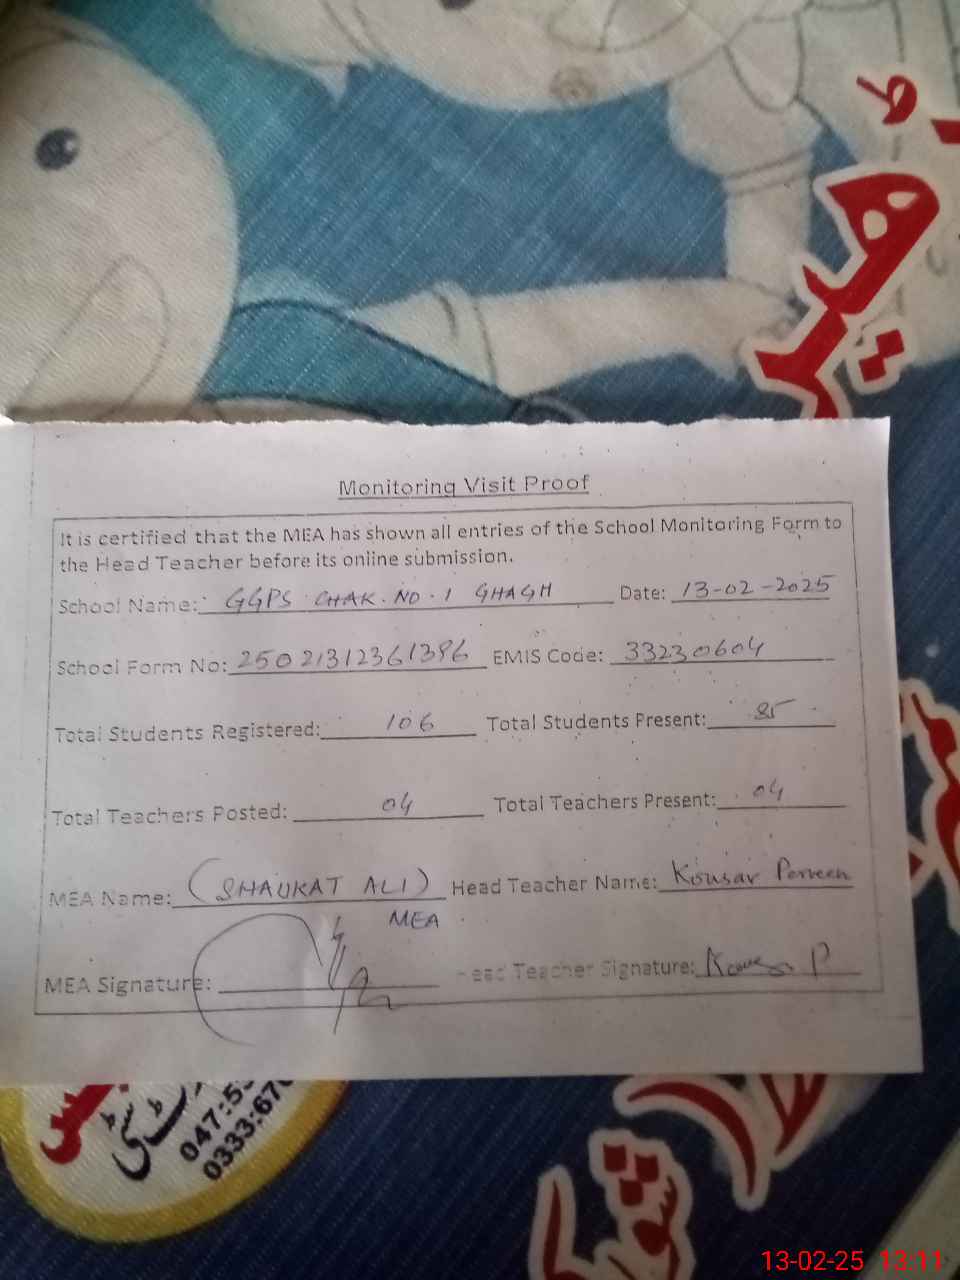 Monitoring Visit Proof
It is certified that the MEA has shown all entries of the School Monitoring Form to
the Head Teacher before its online submission.
School Name: GGPS CHAK. NO. 1 GHAGH Date: 13-02-2025
School Form No: 25021312361396 EMIS Code: 33230604
Total Students Registered: 106 Total Students Present: 85
Total Teachers Posted: 04 Total Teachers Present: 04
MEA Name: (SHAUKAT ALI) Head Teacher Name: Kousar Perveen
MEA
MEA Signature: Head Teacher Signature:
047:55
0333:670
13-02-25 13:11